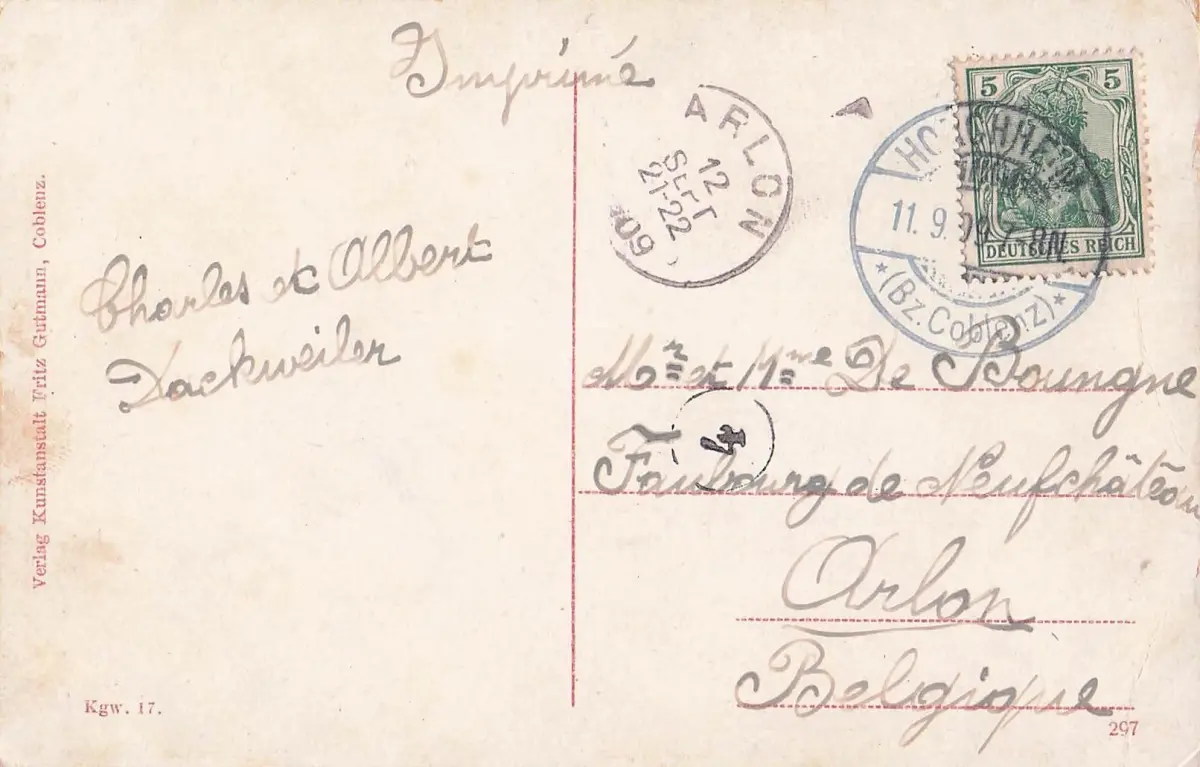 Imprimé
ARLON
12
SEPT
21-22
09
5 5
DEUTSCHES REICH
11. 9. 09. 7-8N.
*(Bz. Coblenz)*
Charles et Albert
Dackweiler
Mr et Mme De Boungne
4
Faubourg de Neufchâteau
Arlon
Belgique
Verlag Kunstanstalt Fritz Gutmann, Coblenz.
Kgw. 17.
297